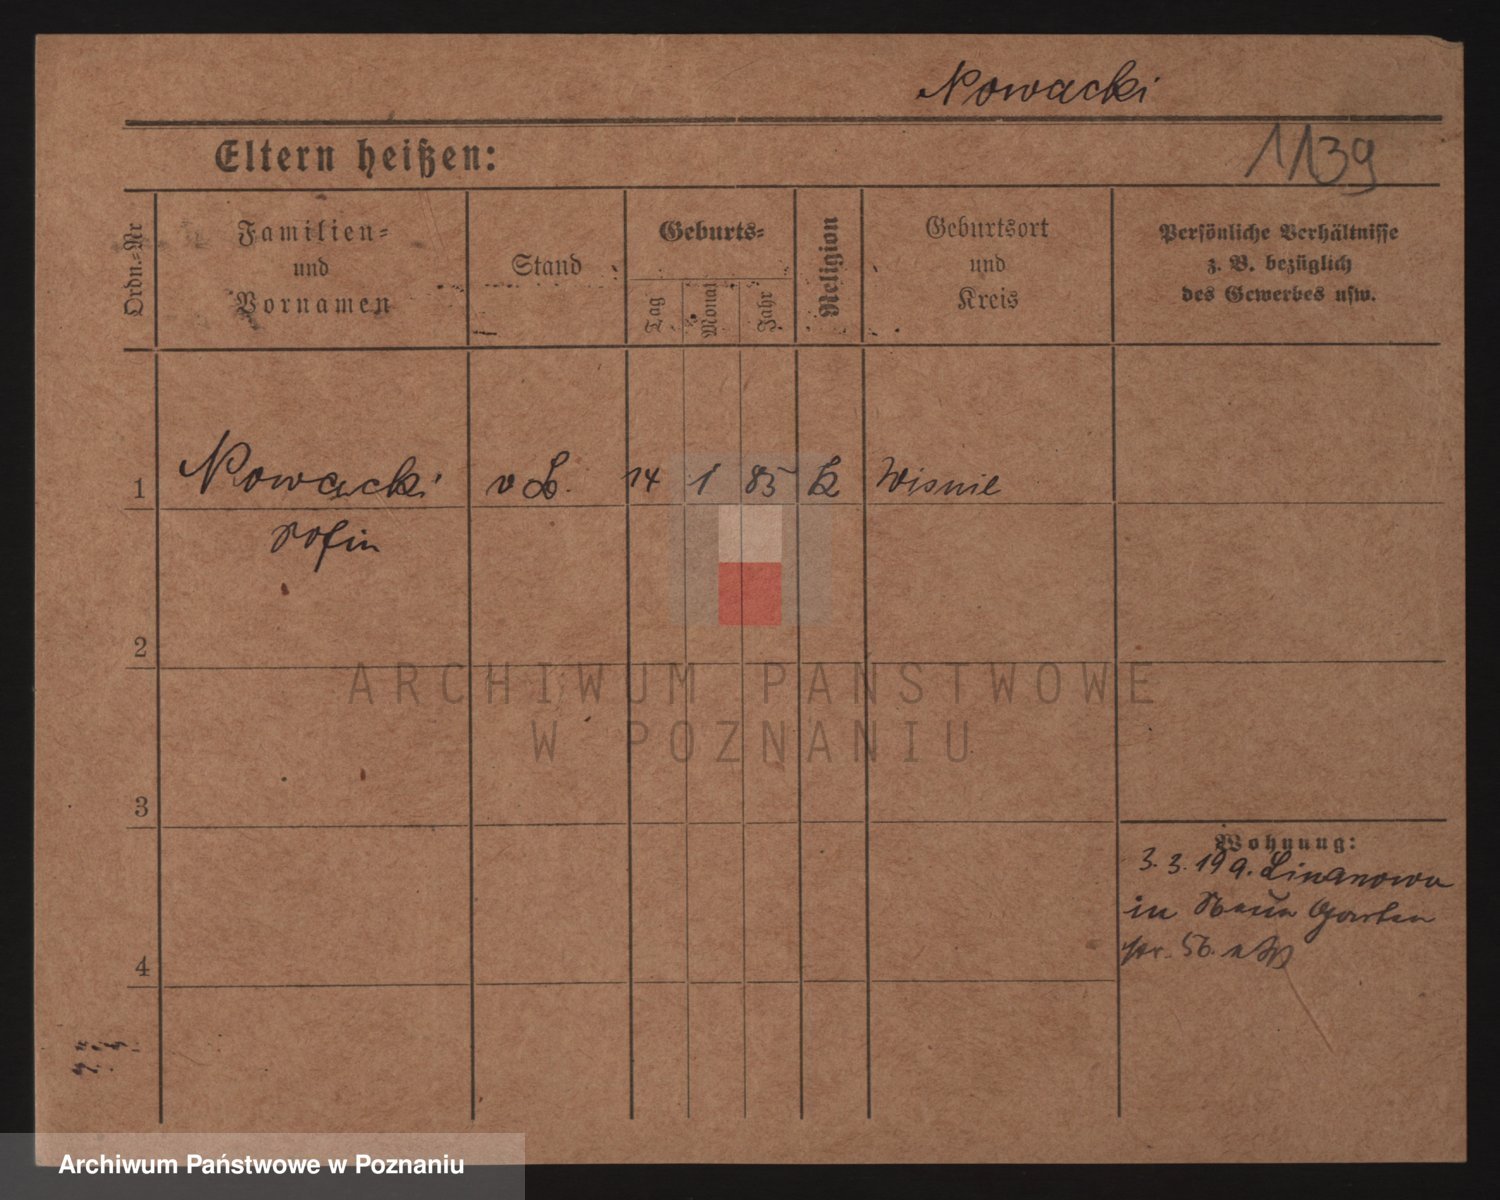 Nowacki
1139
Eltern heißen:
Ordn.=Nr
Familien=
und
Vornamen
Stand
Geburts=
Tag
Monat
Jahr
Religion
Geburtsort
und
Kreis
Persönliche Verhältnisse
z. B. bezüglich
des Gewerbes usw.
1
Nowacki
14
1
85
Wisnie
2
ARCHIWUM PAŃSTWOWE
W POZNANIU
3
Wohnung:
3. 3. 19
in Garten
4
Archiwum Państwowe w Poznaniu